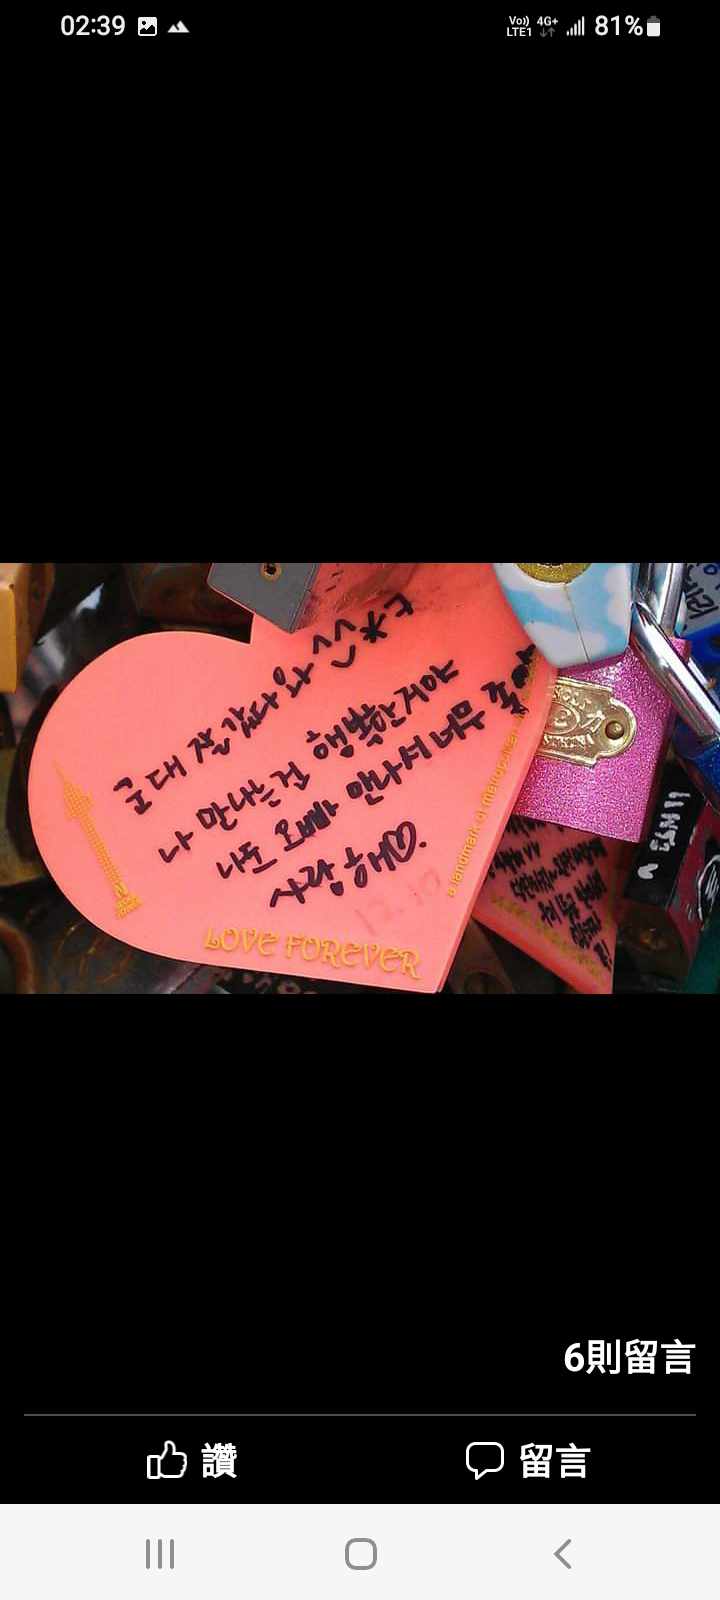 02:39
Vo)) 4G+
LTE1
81%
군대 잘 갔다 와 ^^ ㅊㅋ
나 만나는건 행복한거야
나도 오빠 만나서 너무 좋아
사랑해♡.
12.10
LOVE FOREVER
a landmark of
6則留言
讚
留言